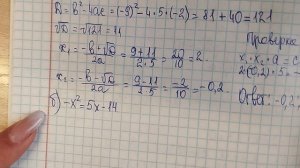 D = b² - 4ac = (-9)² - 4·5·(-2) = 81 + 40 = 121
√D = √121 = 11
x₁ = (-b+√D)/2a = (9+11)/2·5 = 20/10 = 2
x₂ = (-b-√D)/2a = (9-11)/2·5 = -2/10 = -0,2
Проверка
x₁·x₂·a = c
2·(-0,2)·5
Ответ: -0,2
б) -x² = 5x - 14